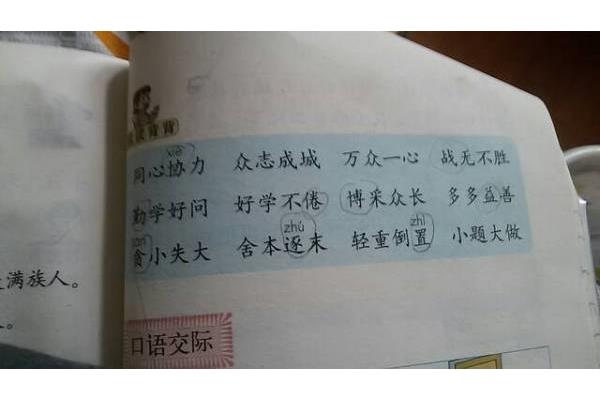 xié
同心协力 众志成城 万众一心 战无不胜
勤学好问 好学不倦 博采众长 多多益善
zhú zhì
贪小失大 舍本逐末 轻重倒置 小题大做
满族人。
口语交际